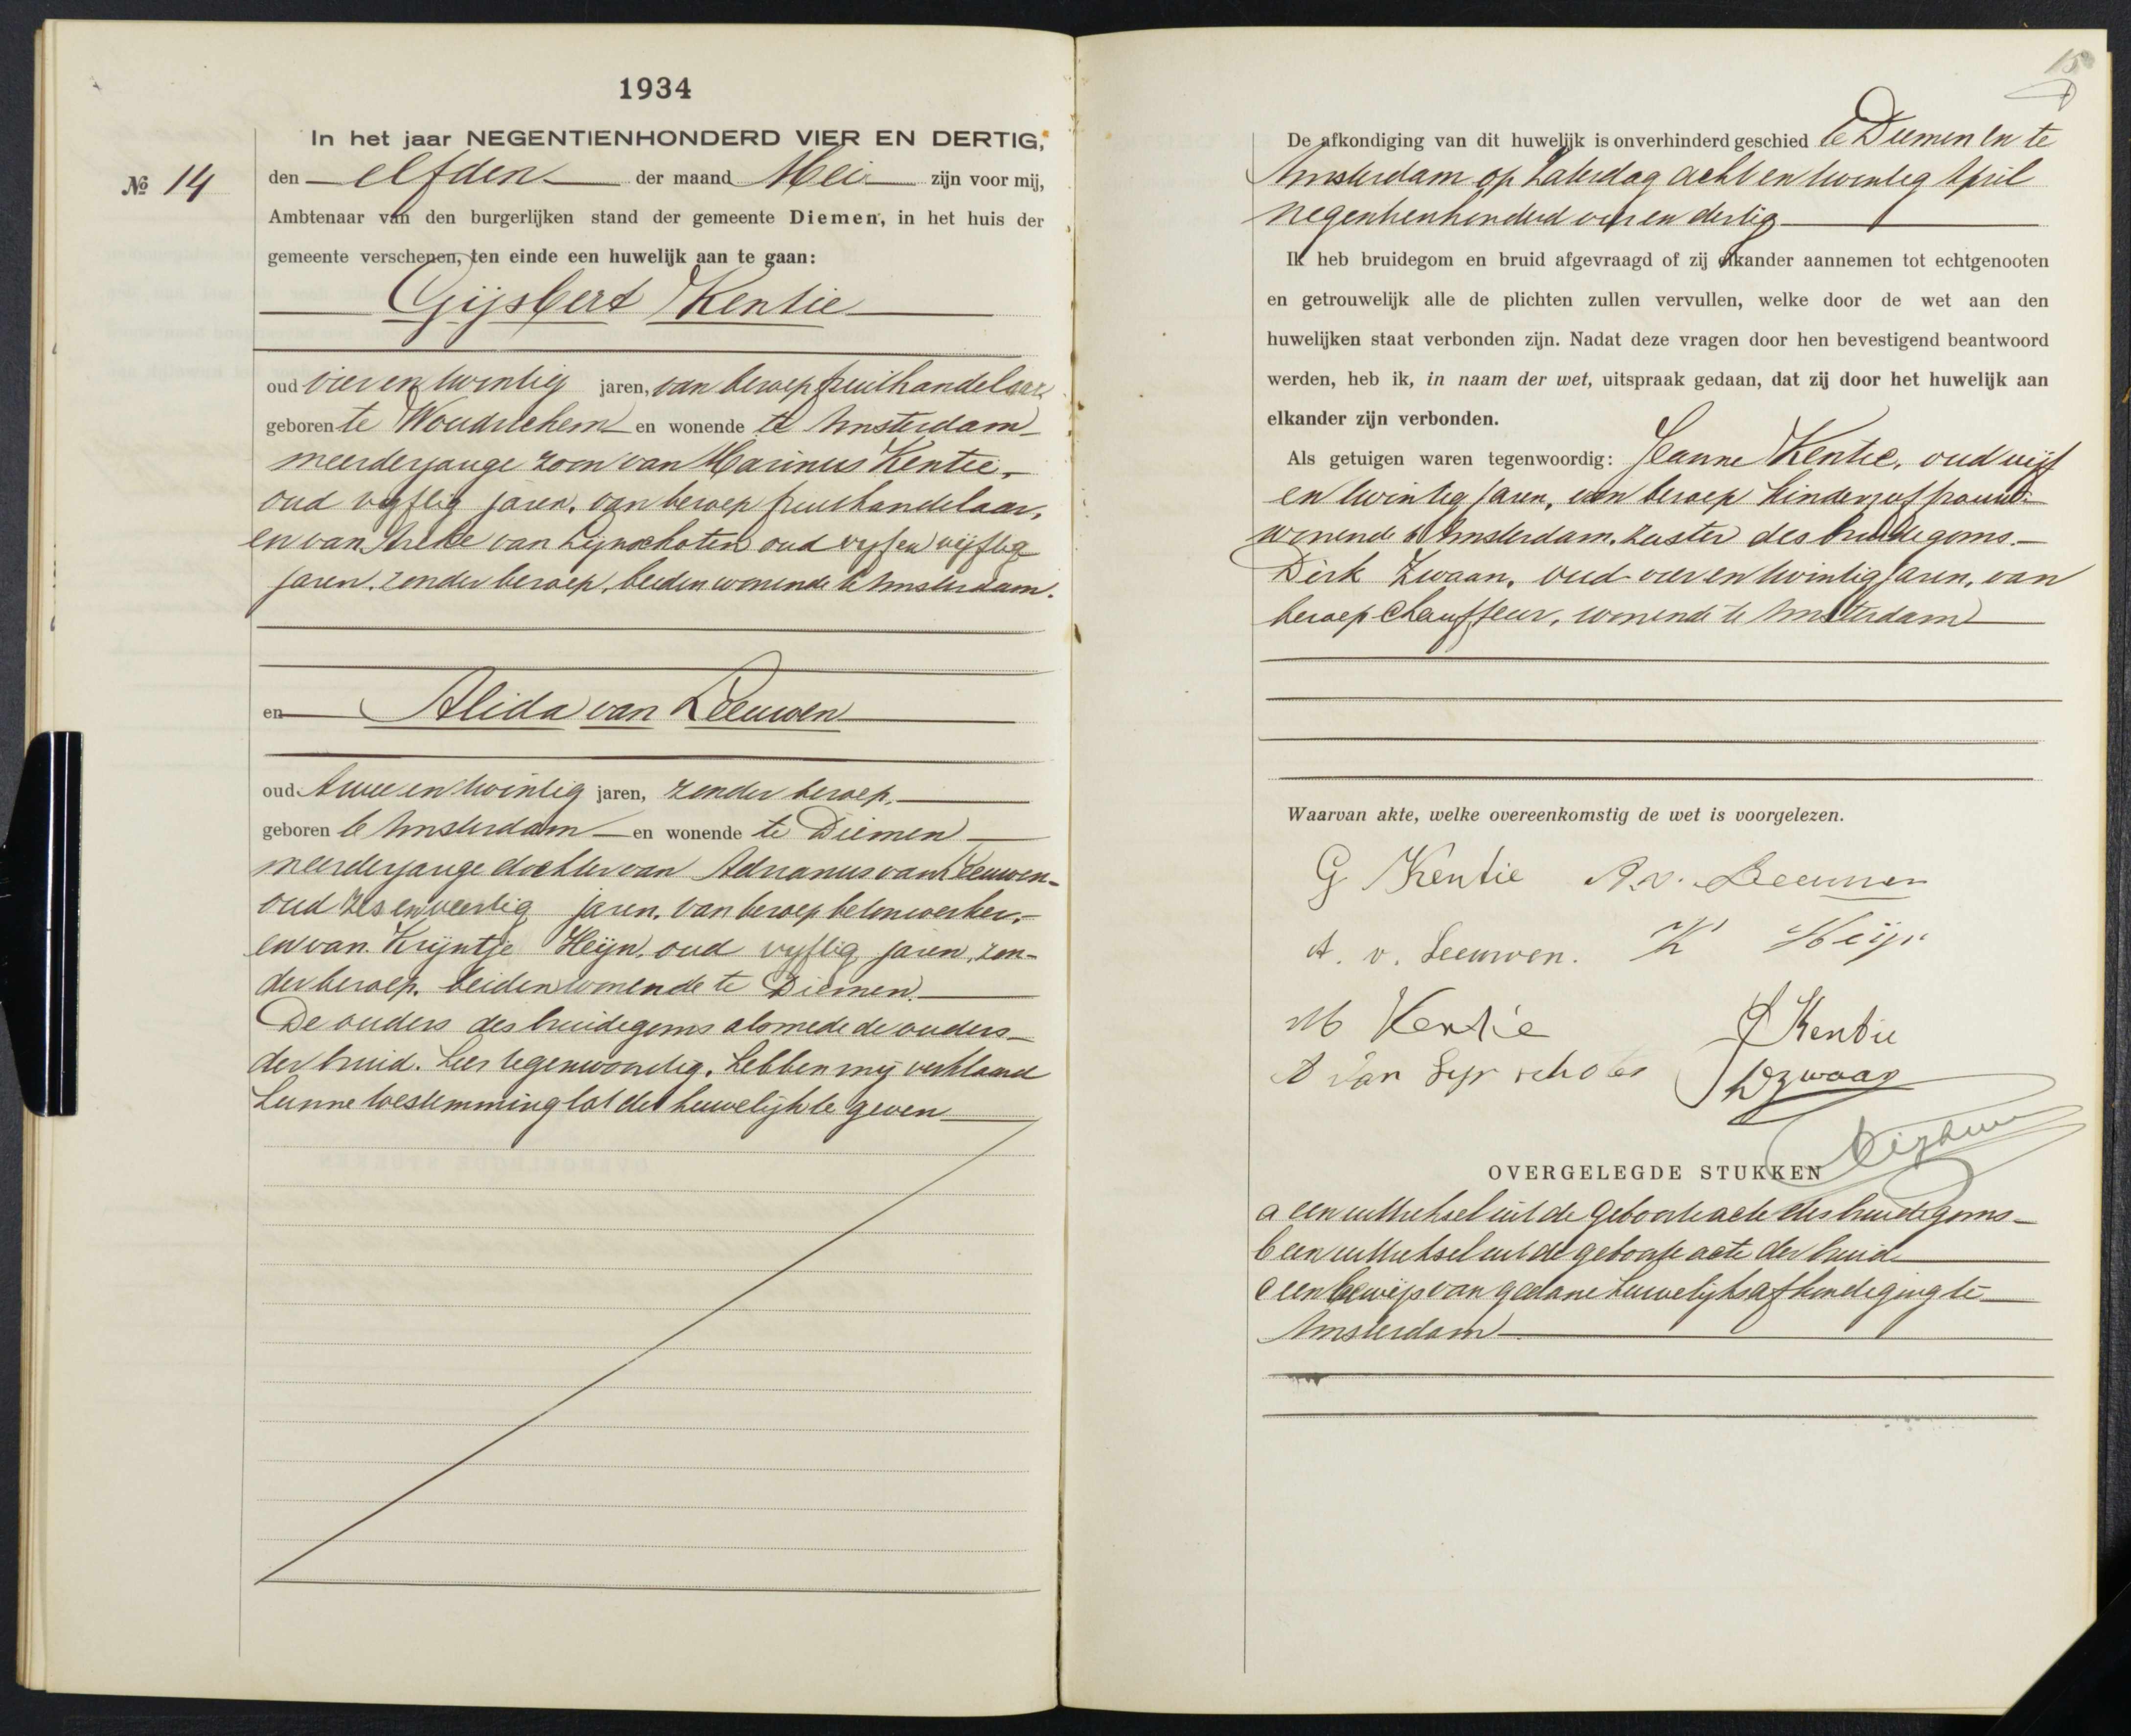 1934
In het jaar NEGENTIENHONDERD VIER EN DERTIG,
№ 14
den elfden der maand Mei zijn voor mij,
Ambtenaar van den burgerlijken stand der gemeente Diemen, in het huis der
gemeente verschenen, ten einde een huwelijk aan te gaan:
Gijsbert Kentie
oud vier en twintig jaren, van beroep fruithandelaar
geboren te Woudrichem en wonende te Amsterdam
meerderjarige zoon van Marinus Kentie,
oud vijftig jaren, van beroep fruithandelaar,
en van van Lijnschoten oud vijf en vijftig
jaren, zonder beroep, beiden wonende te Amsterdam.
en Alida van Leeuwen
oud twee en twintig jaren, zonder beroep,
geboren te Amsterdam en wonende te Diemen
meerderjarige dochter van Adrianus van Leeuwen
oud zes en veertig jaren, van beroep betonwerker,
en van Krijntje Heijn, oud vijftig jaren, zon-
der beroep, beiden wonende te Diemen.
De ouders des bruidegoms alsmede de ouders
der bruid, hier tegenwoordig, hebben mij verklaard
hunne toestemming tot dit huwelijk te geven
15
De afkondiging van dit huwelijk is onverhinderd geschied te Diemen en te
Amsterdam op Zaterdag acht en twintig April
negentienhonderd vier en dertig
Ik heb bruidegom en bruid afgevraagd of zij elkander aannemen tot echtgenooten
en getrouwelijk alle de plichten zullen vervullen, welke door de wet aan den
huwelijken staat verbonden zijn. Nadat deze vragen door hen bevestigend beantwoord
werden, heb ik, in naam der wet, uitspraak gedaan, dat zij door het huwelijk aan
elkander zijn verbonden.
Als getuigen waren tegenwoordig: Jeanne Kentie, oud vijf
en twintig jaren, van beroep kinderjuffrouw
wonende te Amsterdam, zuster des bruidegoms.
Dirk Zwaan, oud vier en twintig jaren, van
beroep chauffeur, wonende te Amsterdam
Waarvan akte, welke overeenkomstig de wet is voorgelezen.
G Kentie A. v. Leeuwen
A. v. Leeuwen. K Heijn
M Kentie J Kentie
A van Lijnschoten D Zwaan
OVERGELEGDE STUKKEN
a een uittreksel uit de geboorteacte des bruidegoms
b een uittreksel uit de geboorte acte der bruid
c een bewijs van gedane huwelijksafkondiging te
Amsterdam